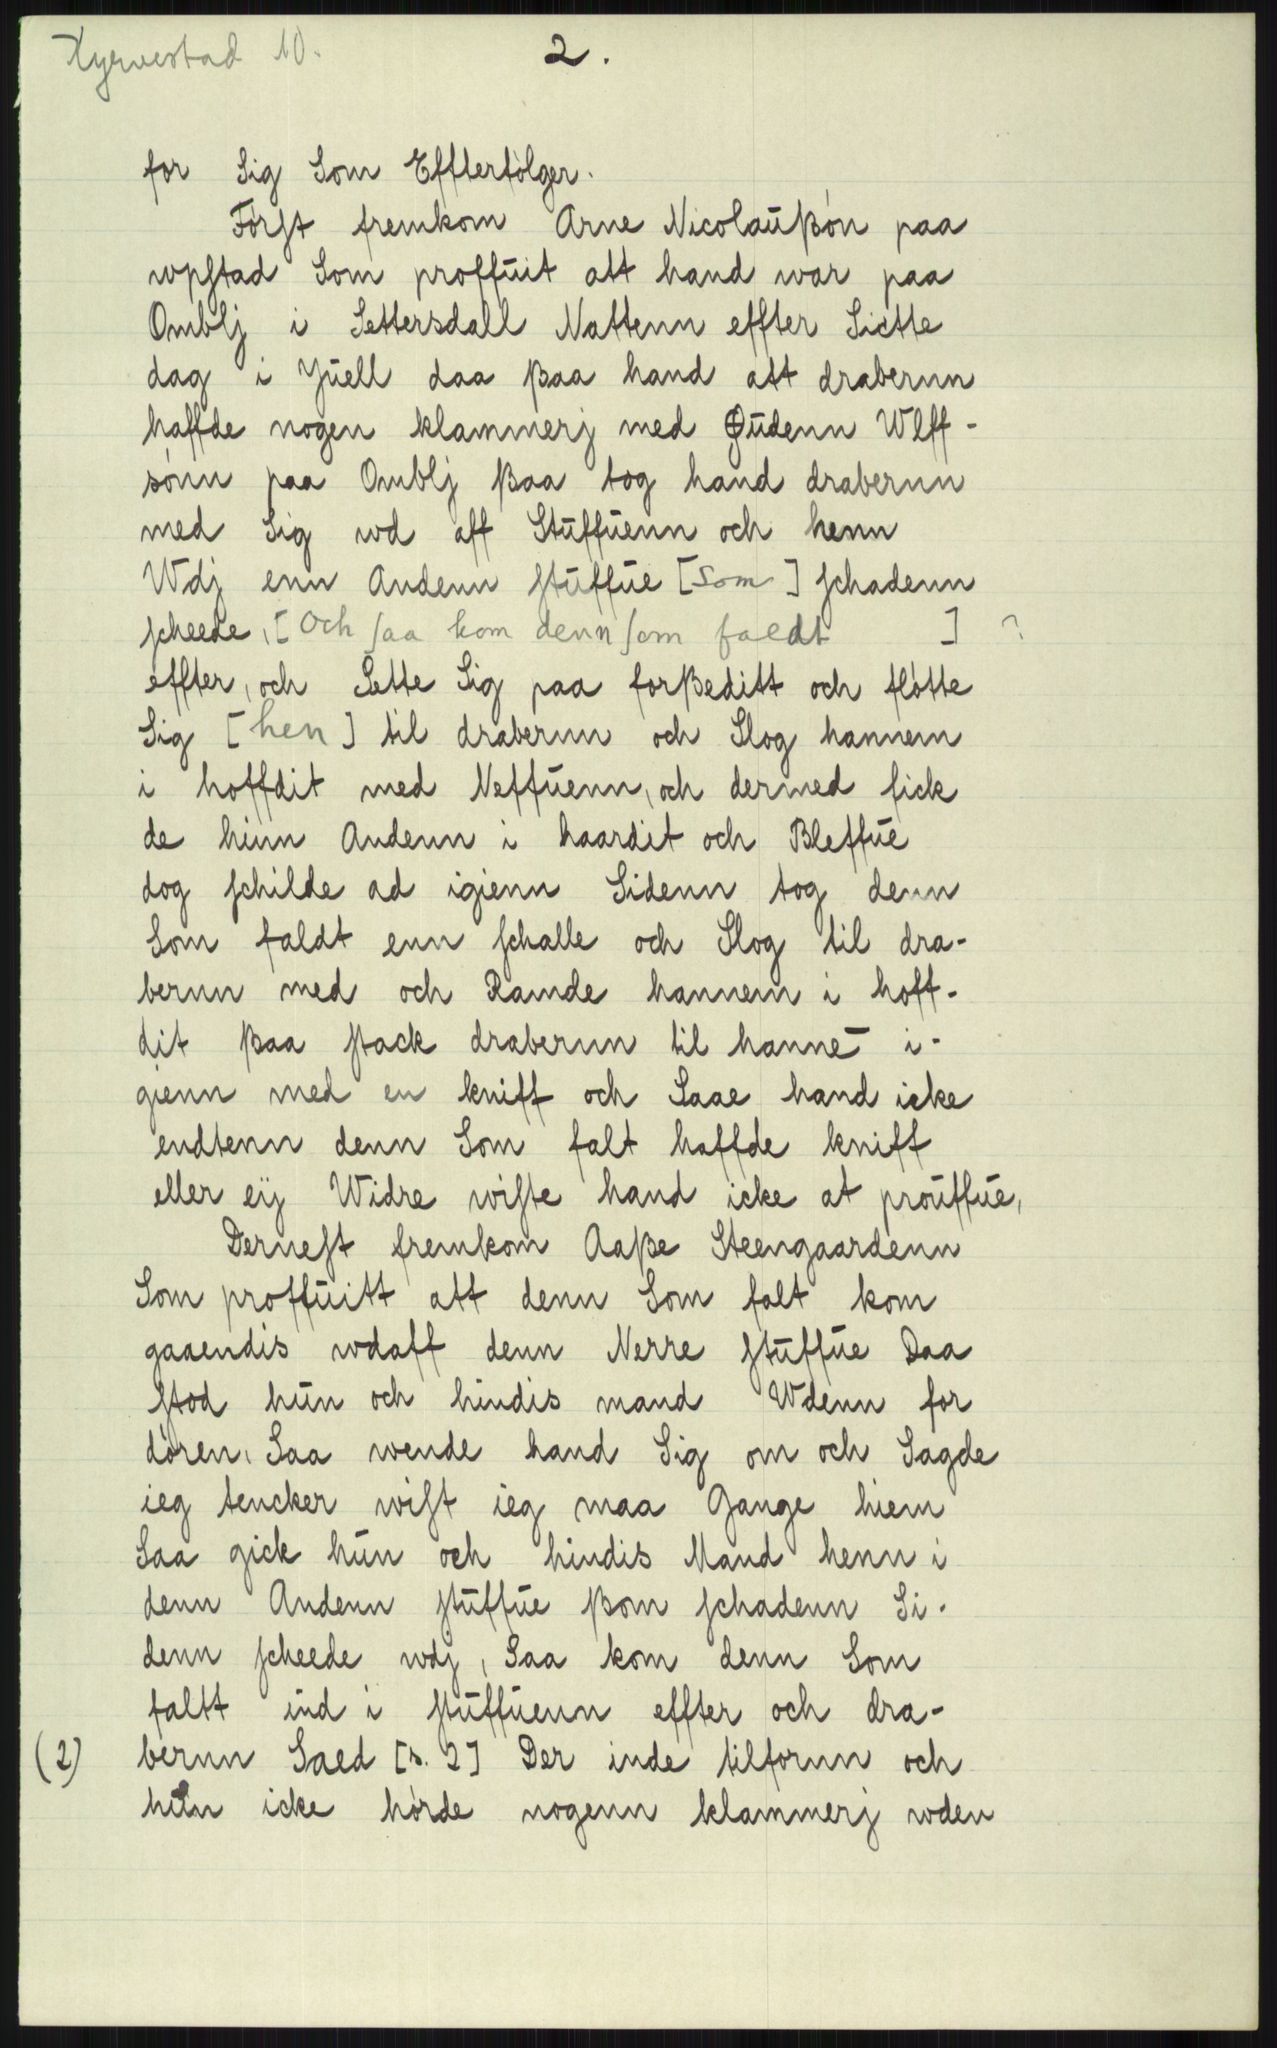 Kyrvestad 10.
2.
for Sig Som Effterfølger.
Først fremkom Arne Nicolaußøn paa
wpstad Som proffuit att hand war paa
Omblj i Settersdall Nattenn effter Siette
dag i Juell daa ßaa hand att drabernn
haffde nogen klammerj med Oudenn Wlff-
sønn paa Omblj ßaa tog hand drabernn
med Sig wd aff Stuffuenn och henn
Wdj enn Andenn stuffue [som] schadenn
scheede, [Och saa kom denn som faldt ] ?
effter, och Sette Sig paa forßeditt och fløtte
Sig [hen] til drabernn och Slog hannem
i hoffdit med Neffuenn, och dermed fick
de hinn Andenn i haardit och Bleffue
dog schilde ad igienn Sidenn tog denn
Som faldt enn schalle och Slog til dra-
bernn med och Ramde hannem i hoff-
dit ßaa stack drabernn til hanne i-
gienn med en kniff och Saae hand icke
endtenn denn Som falt haffde kniff
eller eÿ Widre wiste hand icke at prouffue,
Dernest fremkom Aaße Steengaardenn
Som proffuitt att denn Som falt kom
gaaendis wdaff denn Nerre stuffue Daa
stod hun och hindis mand Wdenn for
døren, Saa wende hand Sig om och Sagde
ieg tencker wist ieg maa Gange hiem
Saa gick hun och hindis Mand henn i
denn Andenn stuffue ßom schadenn Si-
denn scheede wdj, Saa kom denn Som
faltt ind i stuffuenn effter och dra-
(2) bernn Saed [s. 2] Der inde tilfornn och
hun icke hørde nogenn klammerj wden